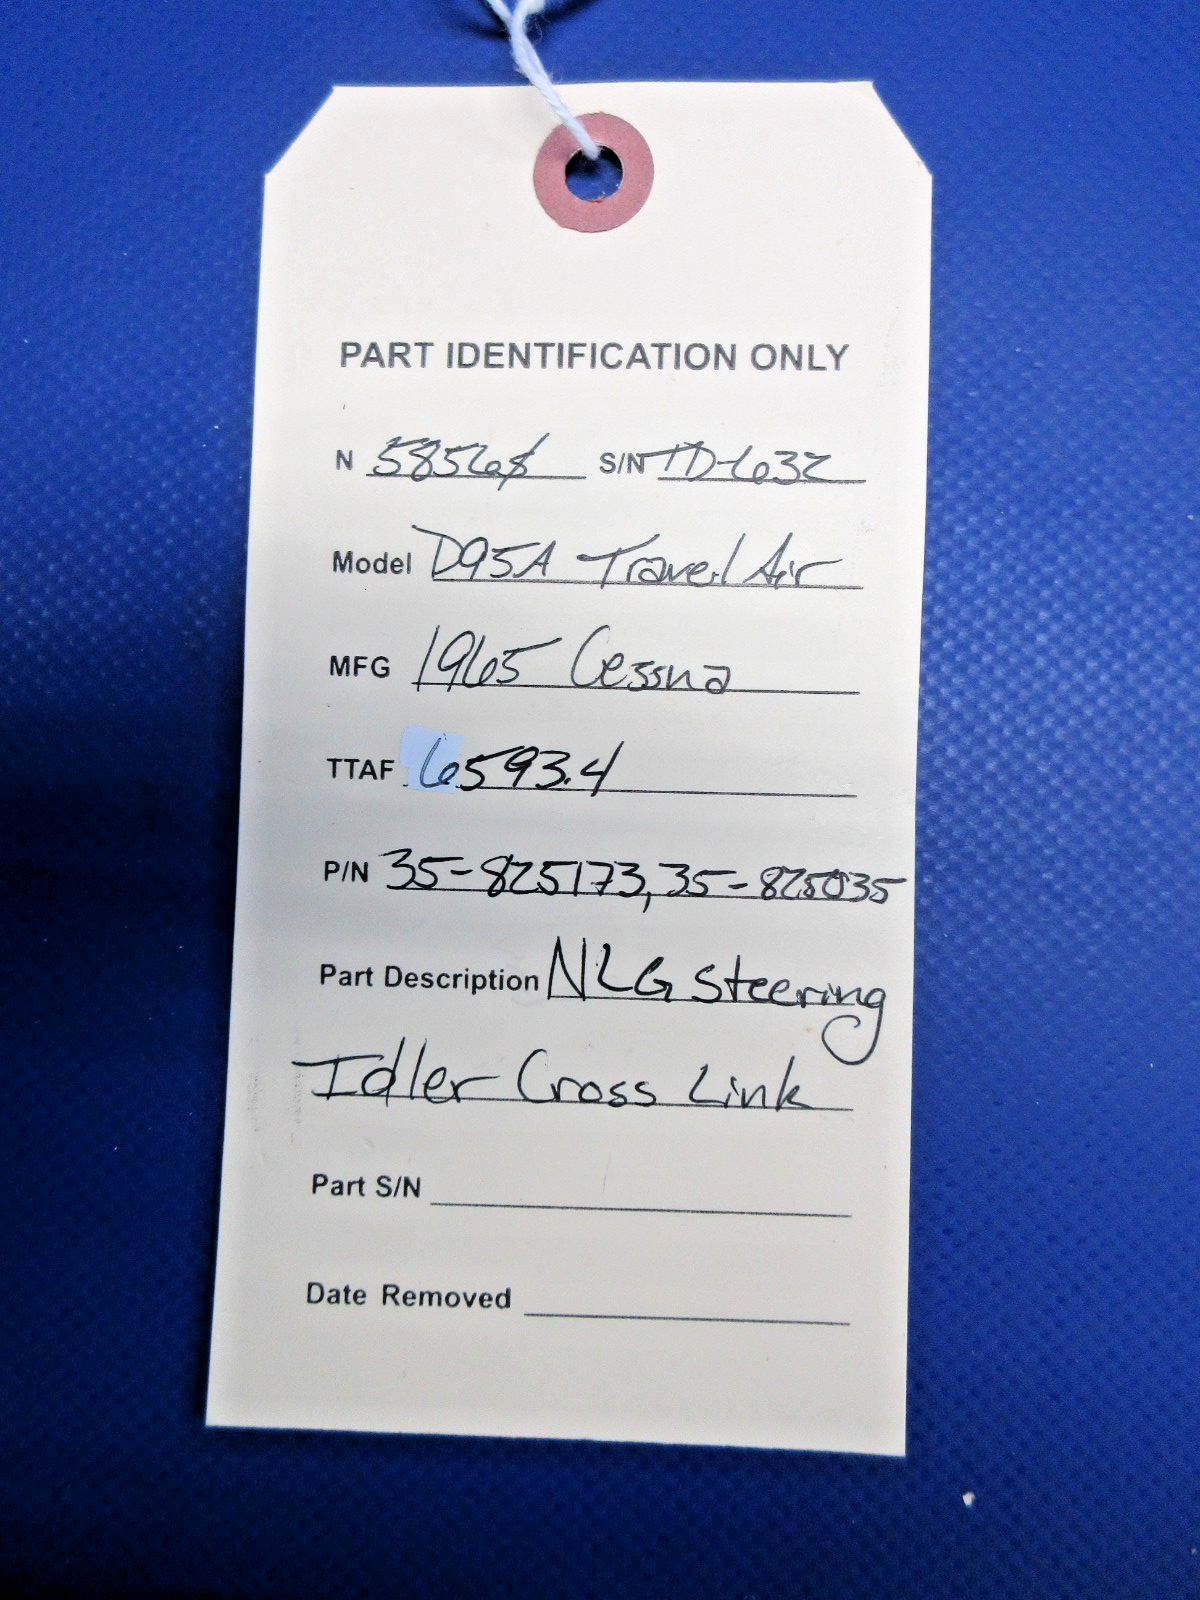 PART IDENTIFICATION ONLY
N 58568 S/N TD-632
Model D95A Travel Air
MFG 1965 Cessna
TTAF 6593.4
P/N 35-825173, 35-825035
Part Description NLG Steering
Idler Cross Link
Part S/N
Date Removed